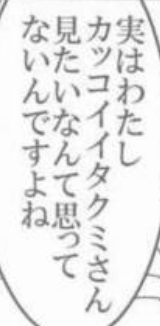 実はわたし
カッコイイタクミさん
見たいなんて思って
ないんですよね